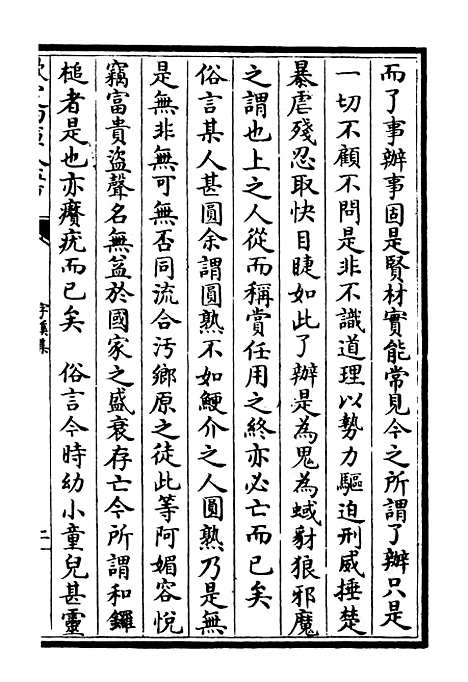 而了事辦事固是賢材實能常見今之所謂了辦只是
一切不顧不問是非不識道理以勢力驅迫刑威捶楚
暴虐殘忍取快目睫如此了辦是為鬼為蜮豺狼邪魔
之謂也上之人從而稱賞任用之終亦必亡而已矣
俗言某人甚圓余謂圓熟不如鯁介之人圓熟乃是無
是無非無可無否同流合汚鄉原之徒此等阿媚容悅
竊富貴盜聲名無益於國家之盛衰存亡今所謂和鑼
槌者是也亦癠疣而已矣　俗言今時幼小童兒甚靈
字溪集
二